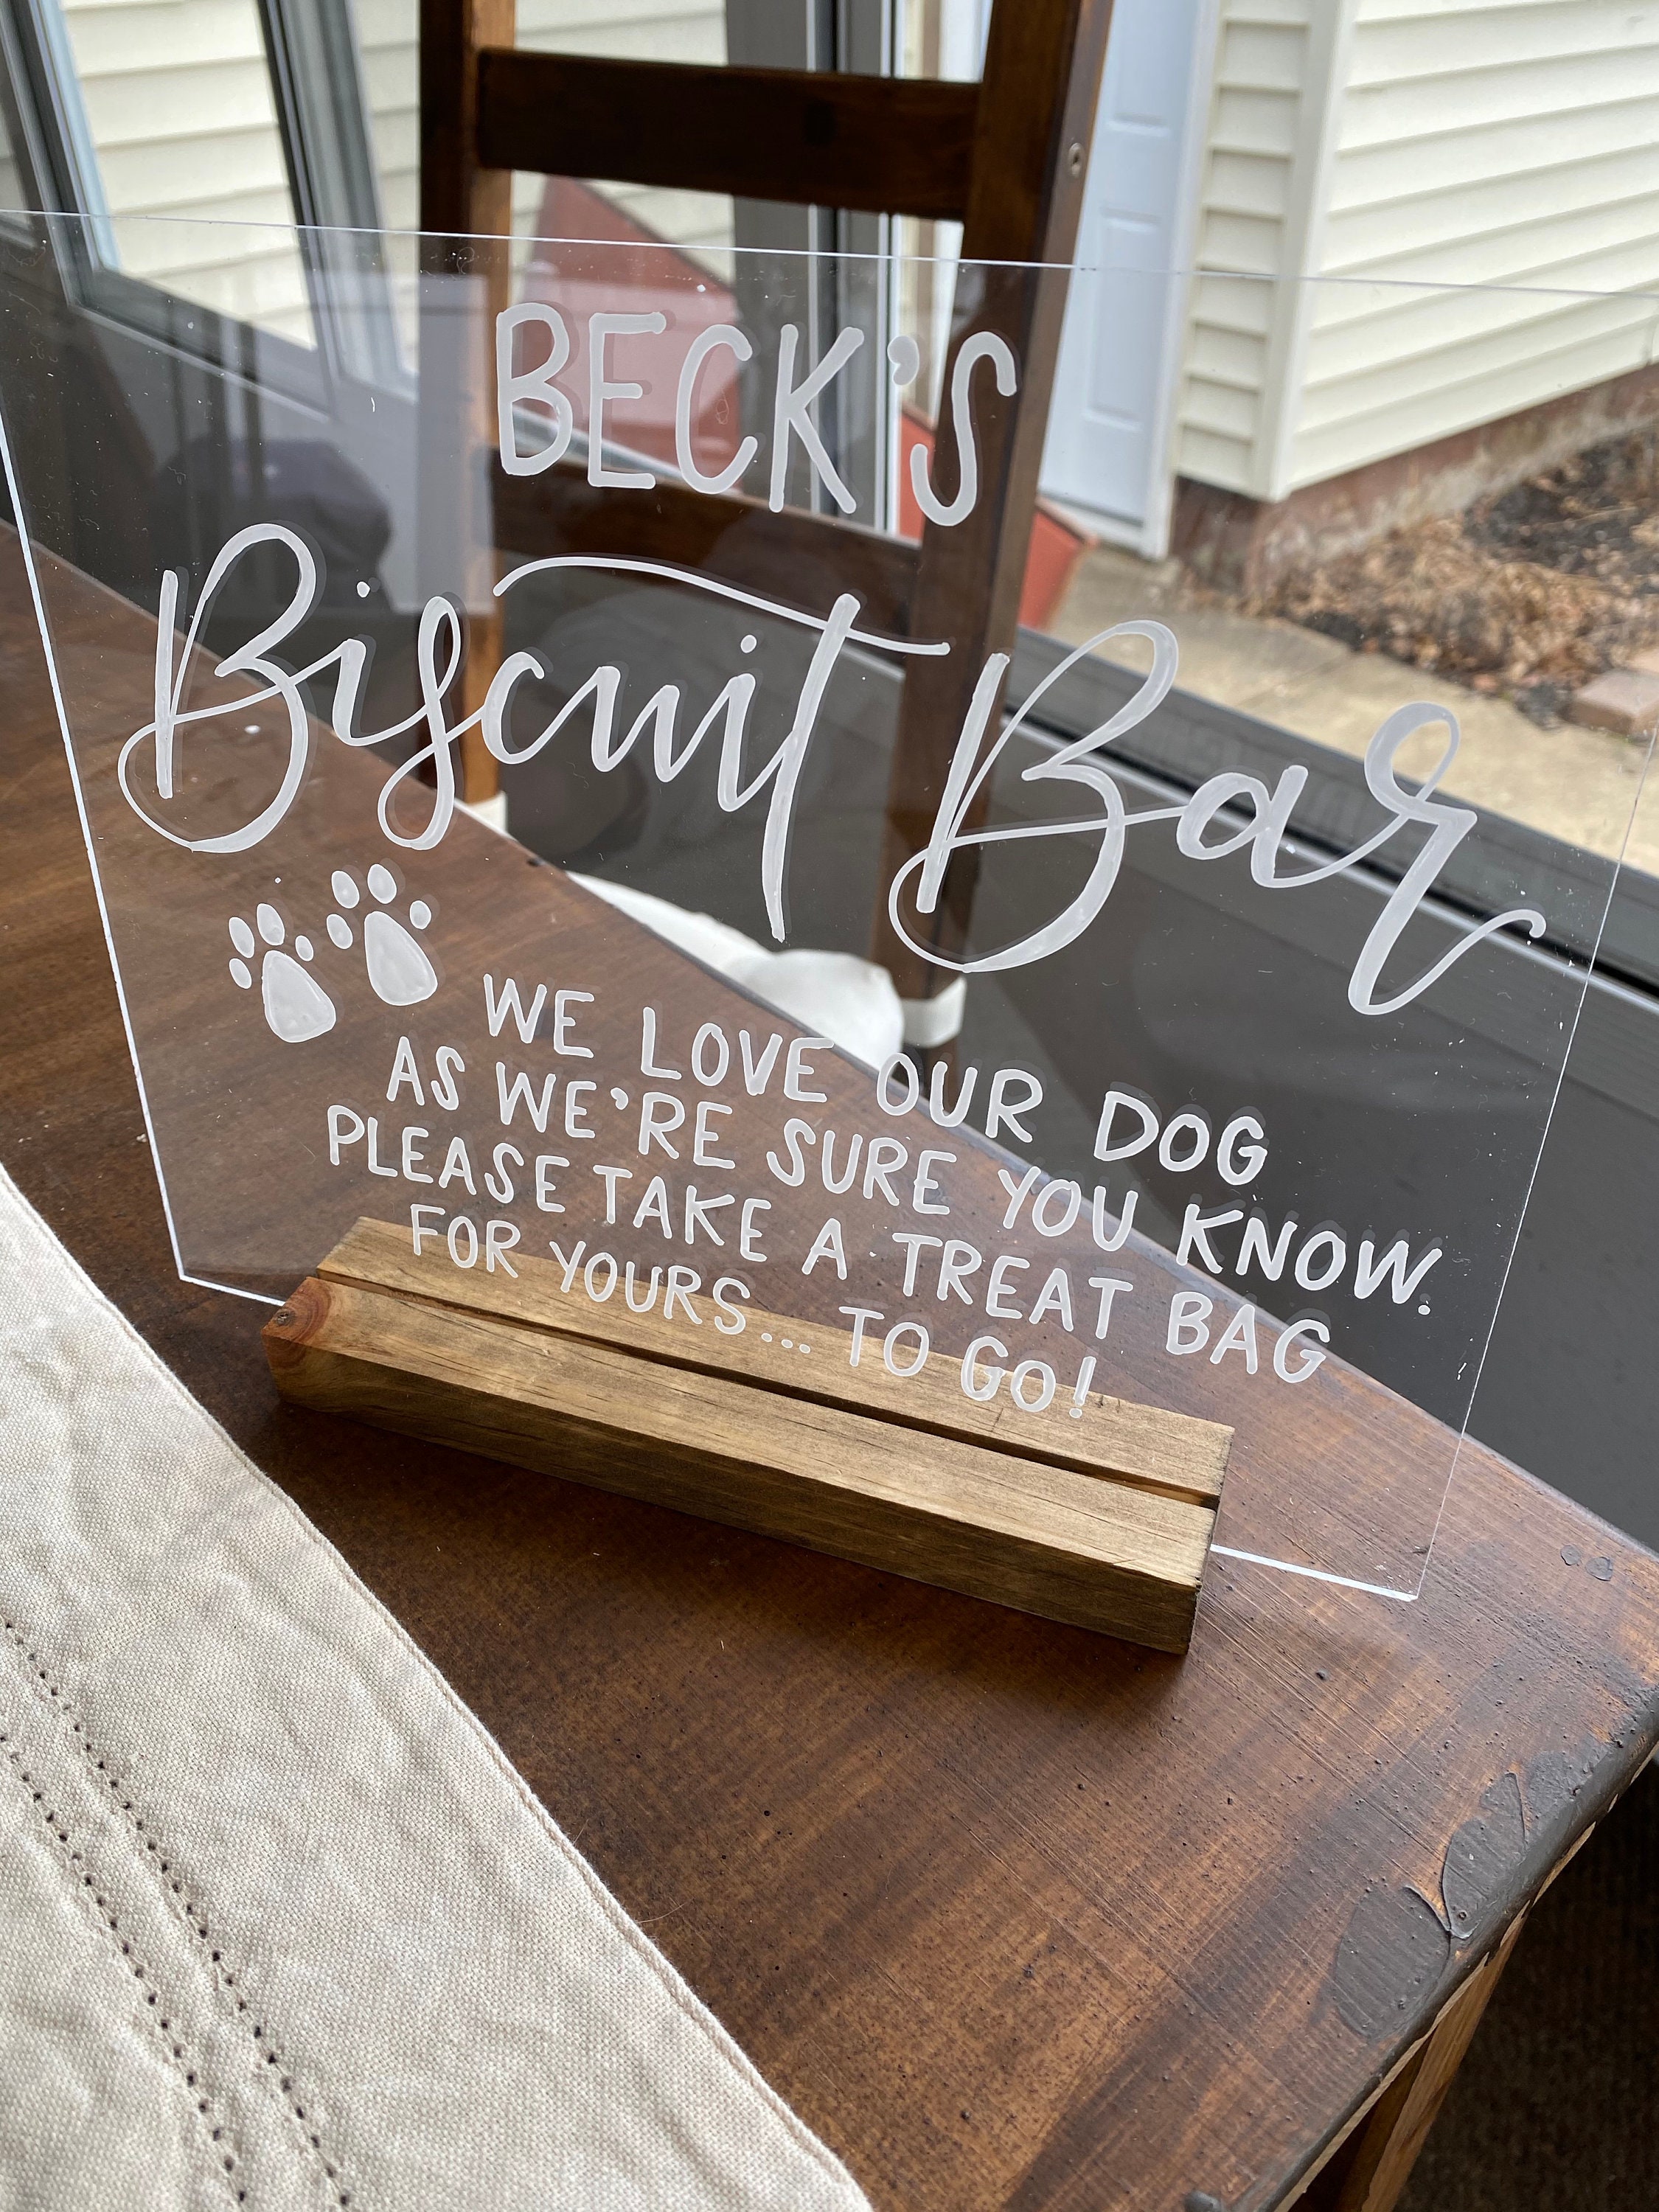 BECK'S
Biscuit Bar
WE LOVE OUR DOG
AS WE'RE SURE YOU KNOW.
PLEASE TAKE A TREAT BAG
FOR YOURS... TO GO!